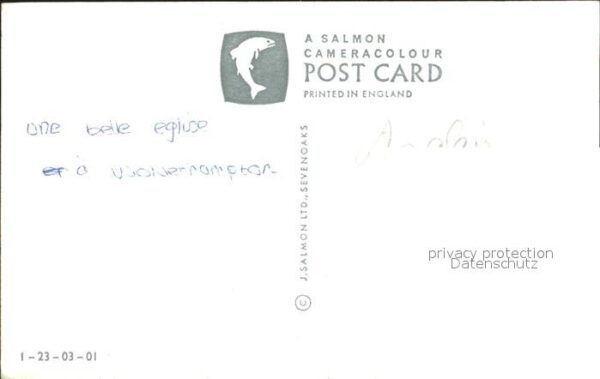 A SALMON
CAMERACOLOUR
POST CARD
PRINTED IN ENGLAND
une belle eglise
à Wolverhampton
© J. SALMON LTD., SEVENOAKS
privacy protection
Datenschutz
1-23-03-01